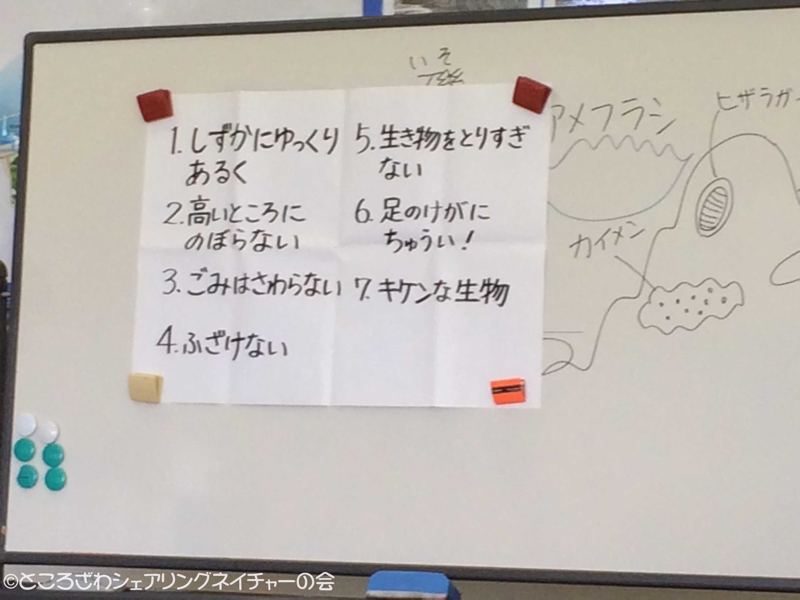 いそ
磯
1. しずかにゆっくり
あるく
2. 高いところに
のぼらない
3. ごみはさわらない
4. ふざけない
5. 生き物をとりすぎ
ない
6. 足のけがに
ちゅうい!
7. キケンな生物
アメフラシ
ヒザラガ
カイメン
©ところざわシェアリングネイチャーの会